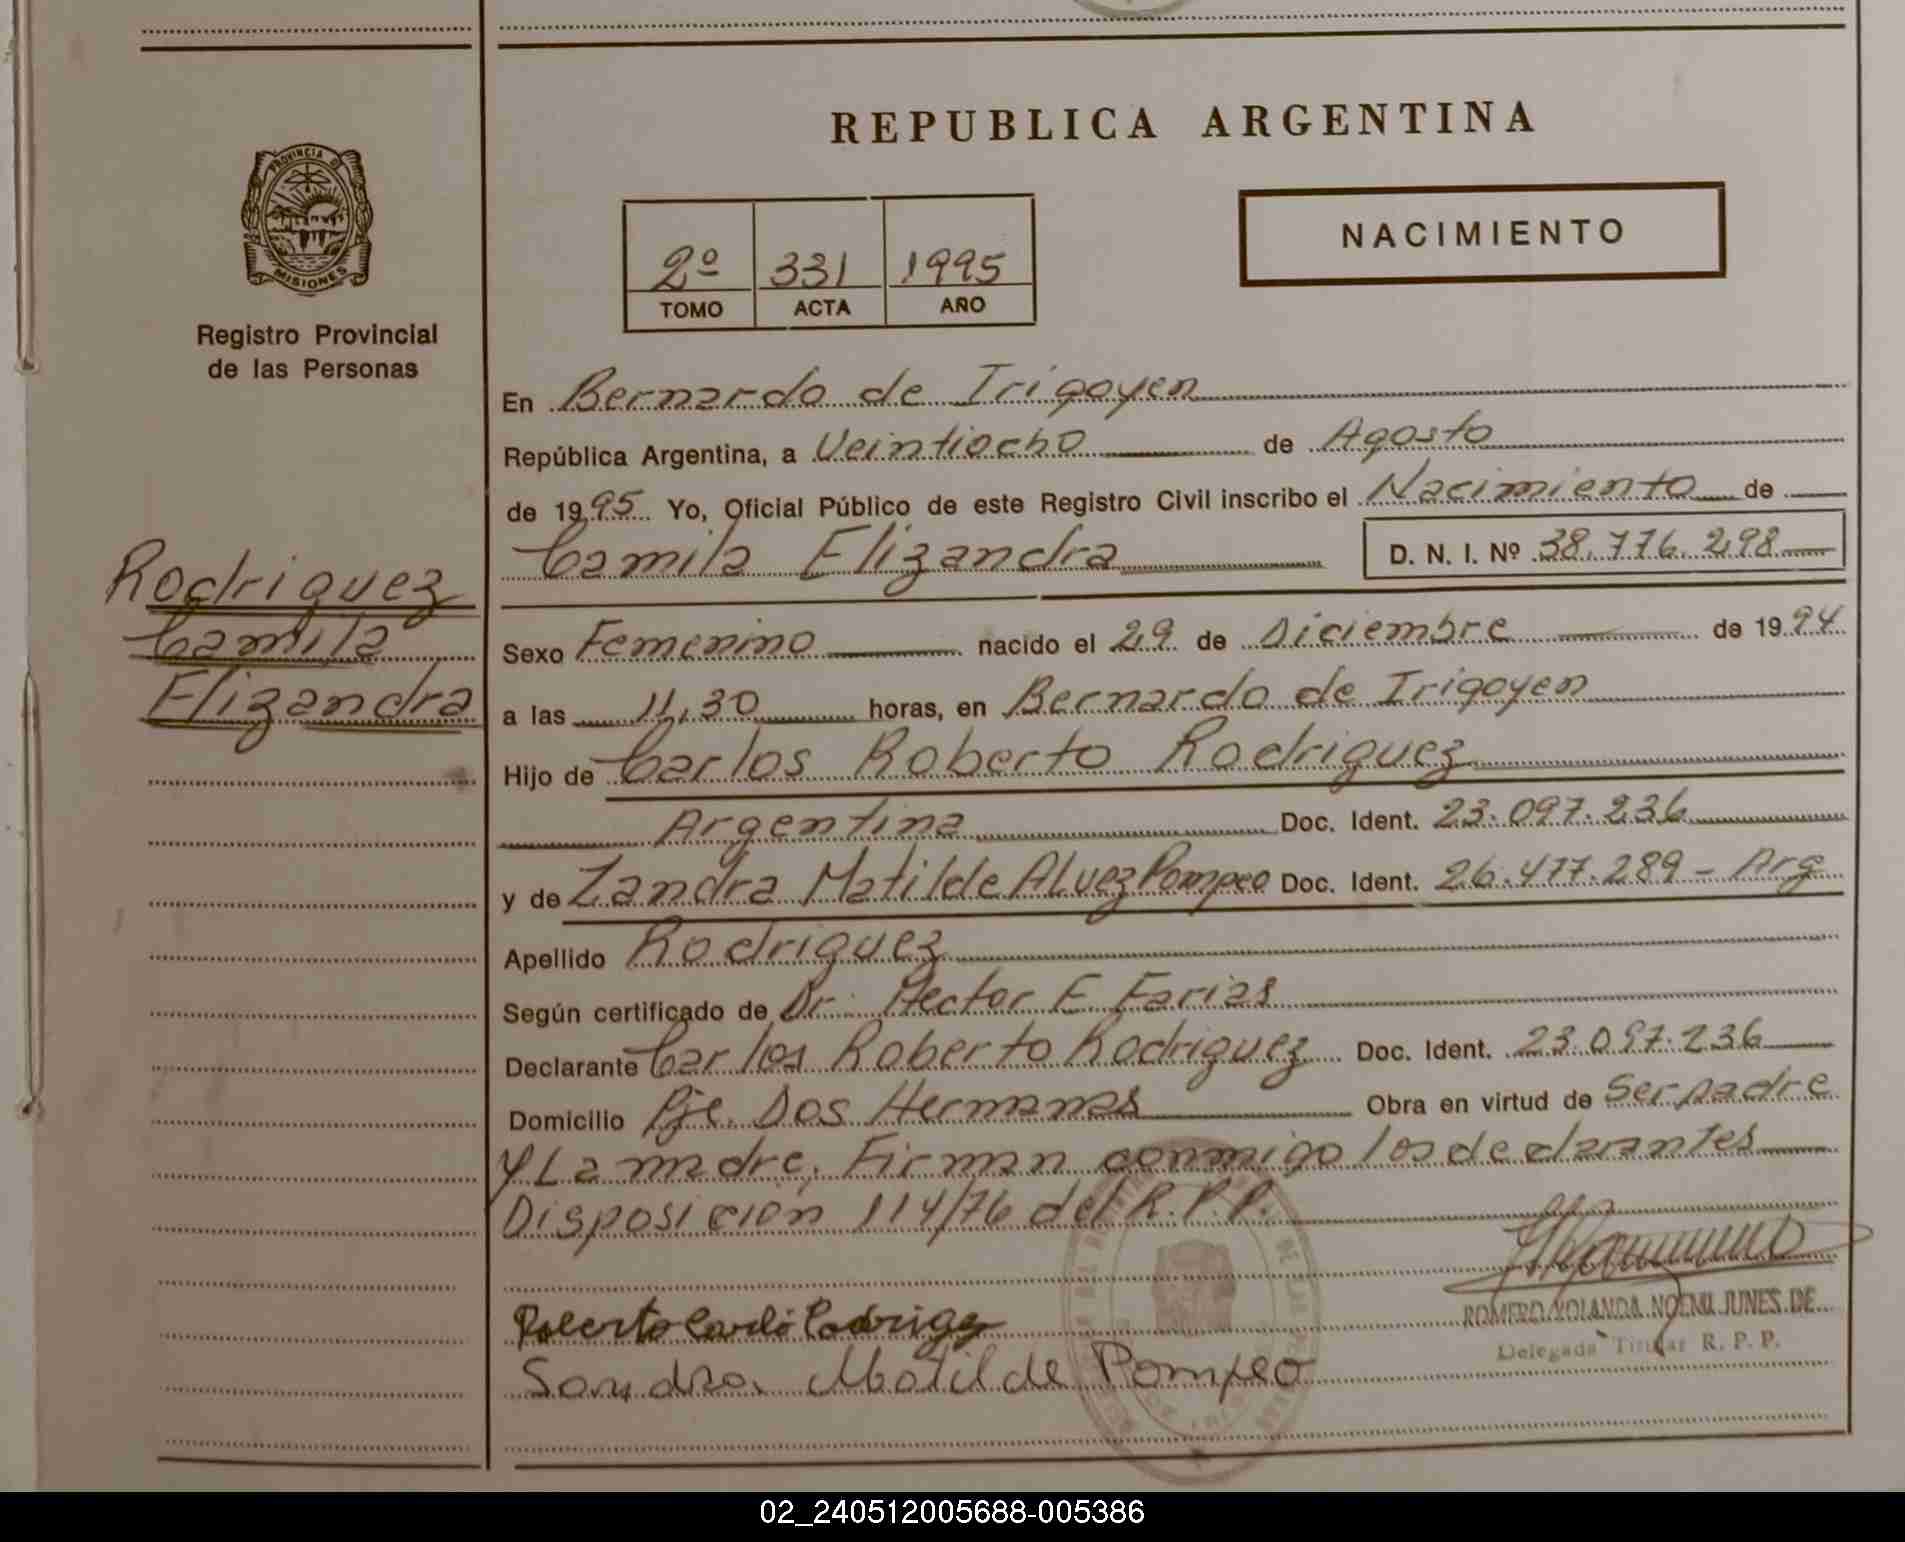 REPUBLICA ARGENTINA
PROVINCIA DE
MISIONES
Registro Provincial
de las Personas
2º 331 1995
TOMO ACTA AÑO
NACIMIENTO
En Bernardo de Irigoyen
República Argentina, a Veintiocho de Agosto
de 1995 Yo, Oficial Público de este Registro Civil inscribo el Nacimiento de
Camila Elizandra D. N. I. Nº 38.776.298
Rodriguez
Camila
Elizandra
Sexo Femenino nacido el 29 de Diciembre de 1994
a las 11,30 horas, en Bernardo de Irigoyen
Hijo de Carlos Roberto Rodriguez
Argentina Doc. Ident. 23.097.236
y de Zandra Matilde Alvez Pompeo Doc. Ident. 26.477.289 - Arg
Apellido Rodriguez
Según certificado de Dr. Hector E. Farias
Declarante Carlos Roberto Rodriguez Doc. Ident. 23.097.236
Domicilio Pje. Dos Hermanas Obra en virtud de Ser padre
y La madre. Firman conmigo los declarantes
Disposición 114/76 del R.P.P.
Roberto Carlo Rodrigz
Sandra Matilde Pompeo
ROMERO YOLANDA NOEMI JUNES DE
Delegada Titular R. P. P.
02_240512005688-005386